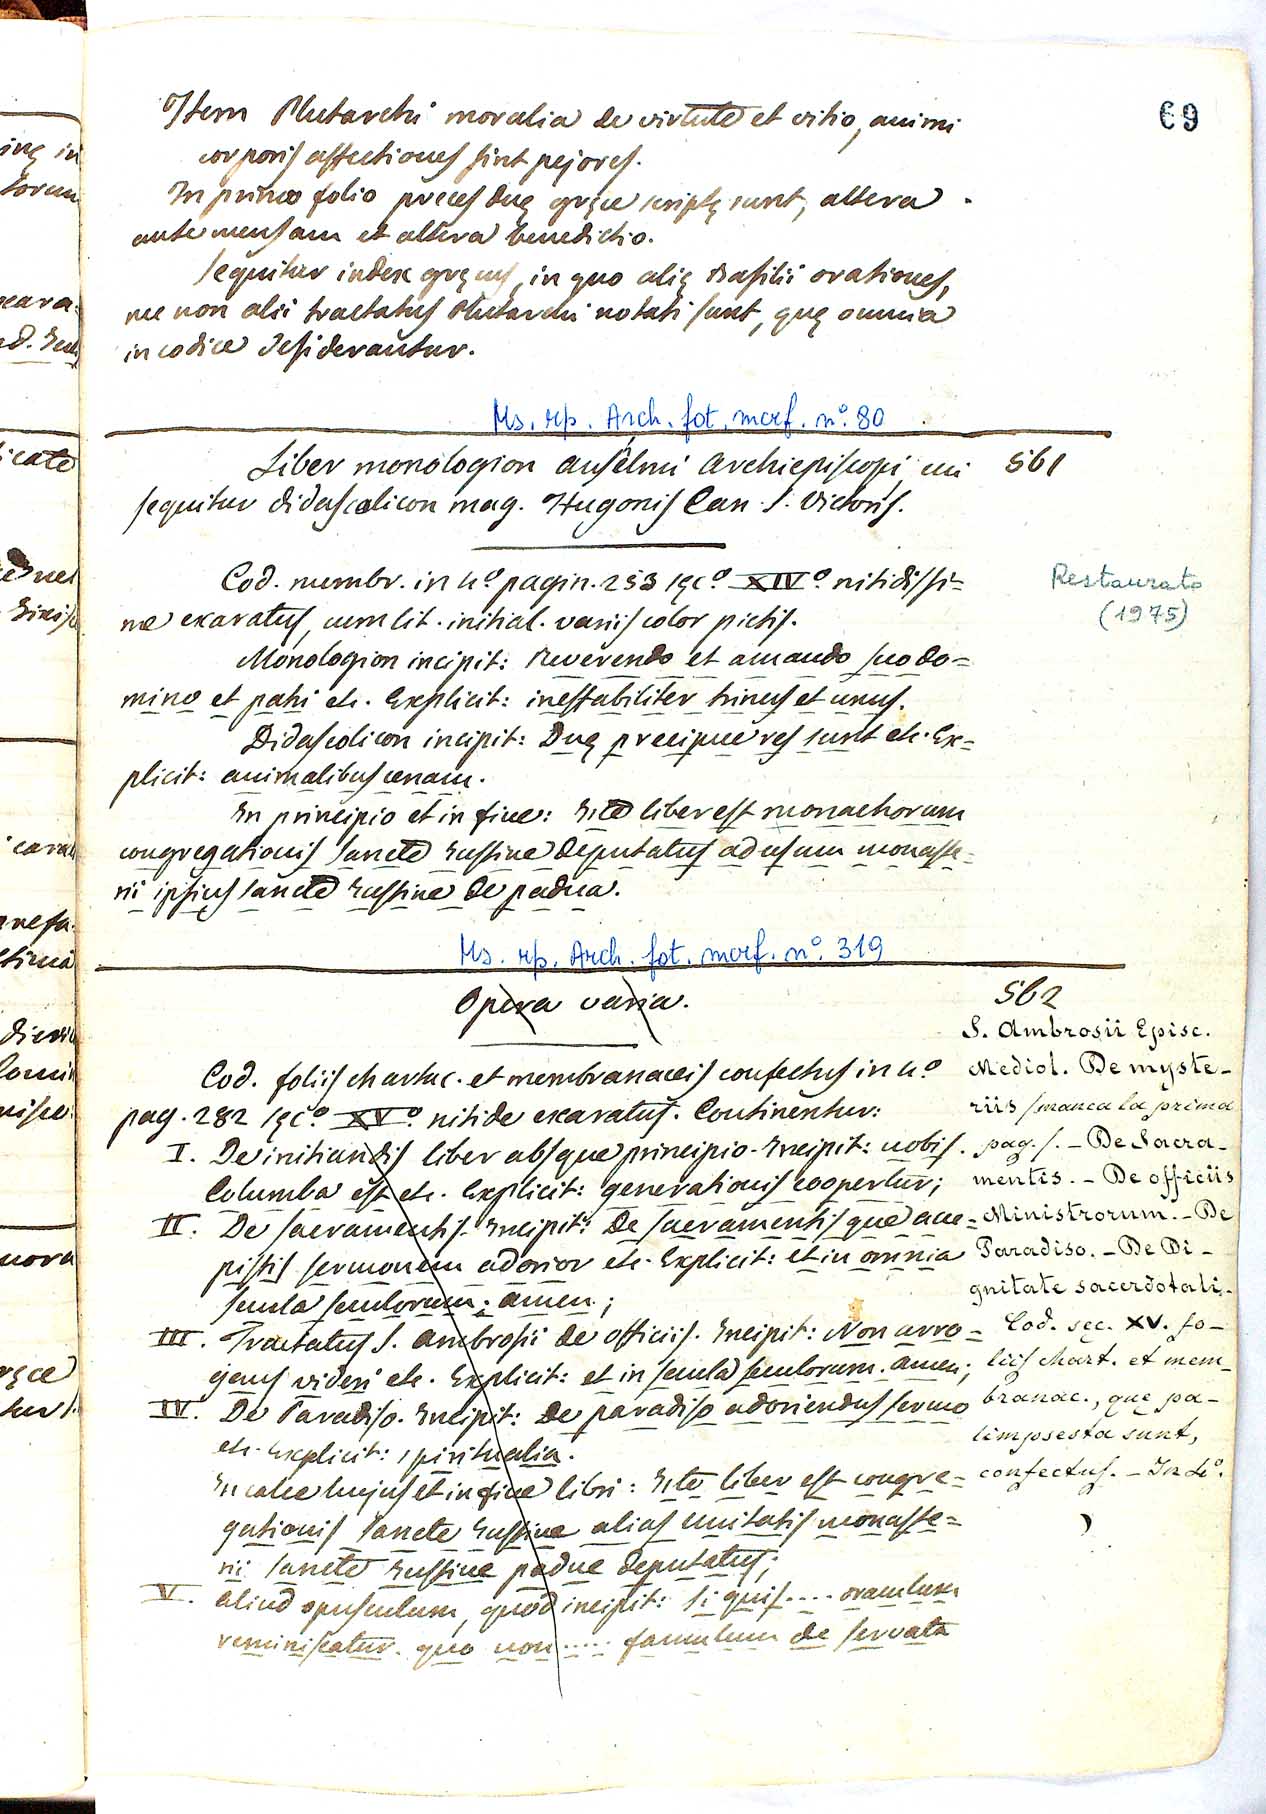 69
Item Plutarchi moralia de virtute et vitio, animi
corporis affectiones sint pejores.
In primo folio preces duę gręce scriptę sunt, altera
ante mensam et altera benedictio.
Sequitur index gręcus, in quo alię Basilii orationes,
nec non alii tractatus Plutarchi notati sunt, quę omnia
in codice desiderantur.
Ms. rip. Arch. fot. mcrf. n.° 80
Liber monologion Anselmi Archiepiscopi, cui
561
sequitur didascalicon mag. Hugonis Can. S. Victoris.
Cod. membr. in 4.° pagin. 253 sęc.° XIV.° nitidissi=
me exaratus, cum lit. initial. variis color pictis.
Restaurato
(1975)
Monologion incipit: Reverendo et amando suo do=
mino et patri etc. Explicit: ineffabiliter trinus et unus.
Didascolicon incipit: Duę precipue res sunt etc. Ex=
plicit: animalibus cenam.
In principio et in fine: Iste liber est monachorum
congregationis Sancte Justine deputatus ad usum monaste=
rii ipsius Sancte Justine de padua.
Ms. rip. Arch. fot. mcrf. n.° 319
Opera varia.
562
Cod. foliis chartac. et membranaceis confectus in 4.°
pag. 282 sęc.° XV.° nitide exaratus. Continentur:
I. De initiandis liber absque principio. Incipit: nobis.
Columba est etc. Explicit: generationis cooperetur;
II. De sacramentis. Incipit: De sacramentis que acce=
pistis sermonem adorior etc. Explicit: et in omnia
secula seculorum. amen;
III. Tractatus S. Ambrosii de officiis. Incipit: Non arro=
gens videri etc. Explicit: et in secula seculorum. amen;
IV. De Paradiso. Incipit: De paradiso adoriendus sermo
etc. Explicit: spiritualia.
In calce hujus et in fine libri: Iste liber est congre=
gationis Sancte Justine alias unitatis monaste=
rii Sancte Justine padue deputatus;
V. aliud opusculum, quod incipit: Si quis .... oraculum
reminiscatur. quo non ..... famulum de servata
S. Ambrosii Episc.
Mediol. De myste-
riis (manca la prima
pag.). - De Sacra-
mentis. - De officiis
Ministrorum. - De
Paradiso. - De Di-
gnitate sacerdotali.
Cod. sec. XV. fo-
liis chart. et mem-
branac., que pa-
limpsesta sunt,
confectus. - In 4.°